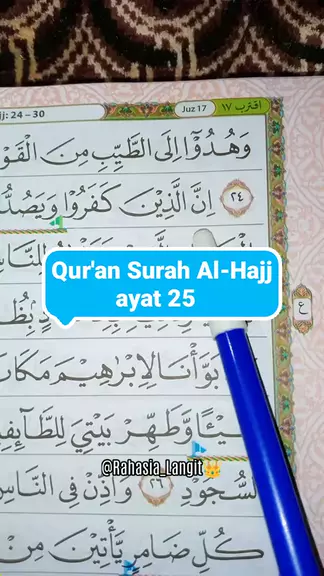 jj: 24 – 30
Juz 17
اقترب ١٧
وَهُدُوْٓا اِلَى الطَّيِّبِ مِنَ الْقَوْ
٢٤ اِنَّ الَّذِيْنَ كَفَرُوْا وَيَصُدُّ
Qur'an Surah Al-Hajj
ayat 25
ع
بَوَّأْنَا لِاِبْرٰهِيْمَ مَكَانَ
شَيْـًٔا وَّطَهِّرْ بَيْتِيَ لِلطَّاۤىِٕفِ
@Rahasia_Langit👑
السُّجُوْدِ ٢٦ وَاَذِّنْ فِى النَّاسِ
كُلِّ ضَامِرٍ يَّأْتِيْنَ مِنْ